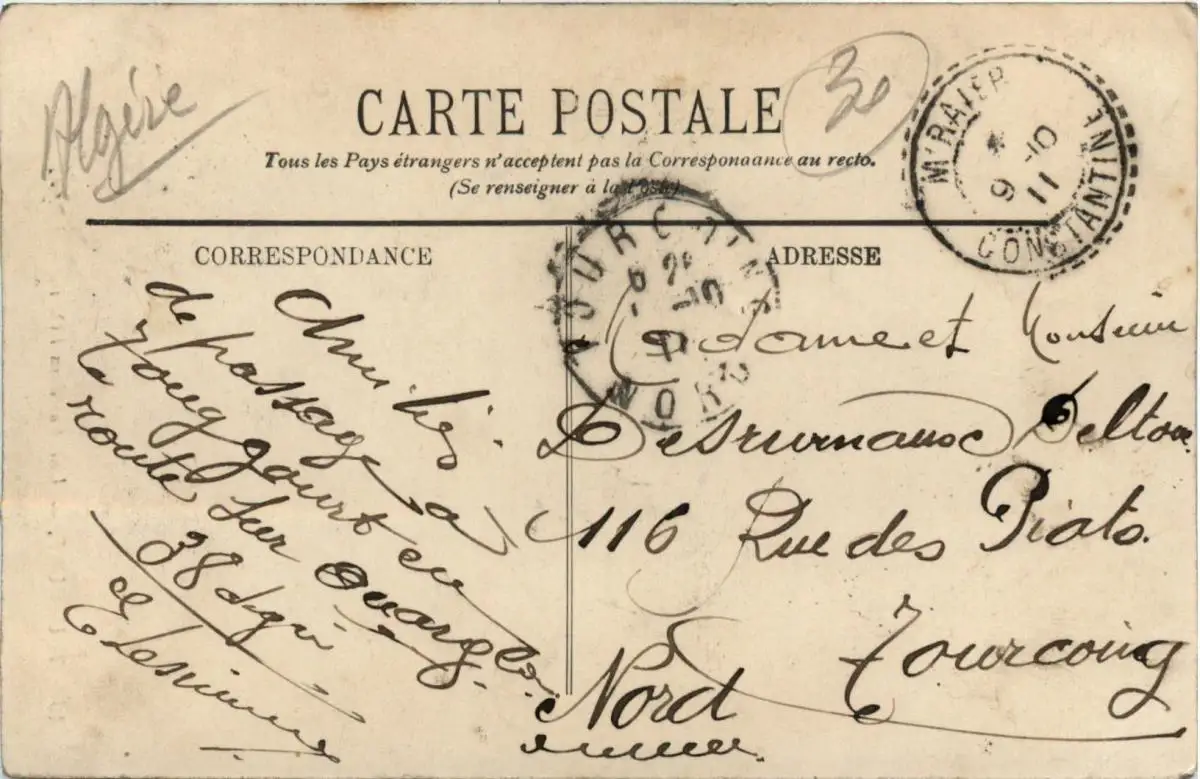 Algérie
30
CARTE POSTALE
Tous les Pays étrangers n'acceptent pas la Correspondance au recto.
(Se renseigner à la Poste)
M'RAIER
CONSTANTINE
9 -10
11
TOURCOING
NORD
CORRESPONDANCE
ADRESSE
de passage a
Touggourt en
route sur Ouargla
38 dg
Madame et Monsieur
116 Rue des Piats.
Tourcoing
Nord